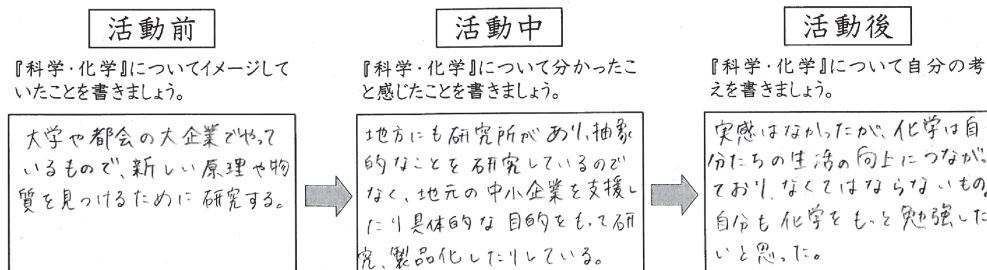 活動前
『科学・化学』についてイメージして
いたことを書きましょう。
大学や都会の大企業でやって
いるもので、新しい原理や物
質を見つけるために研究する。
活動中
『科学・化学』について分かったこ
と感じたことを書きましょう。
地方にも研究所があり、抽象
的なことを研究しているので
なく、地元の中小企業を支援し
たり具体的な目的をもって研
究、製品化したりしている。
活動後
『科学・化学』について自分の考
えを書きましょう。
実感はなかったが、化学は自
分たちの生活の向上につながっ
ており、なくてはならないもの。
自分も化学をもっと勉強した
いと思った。